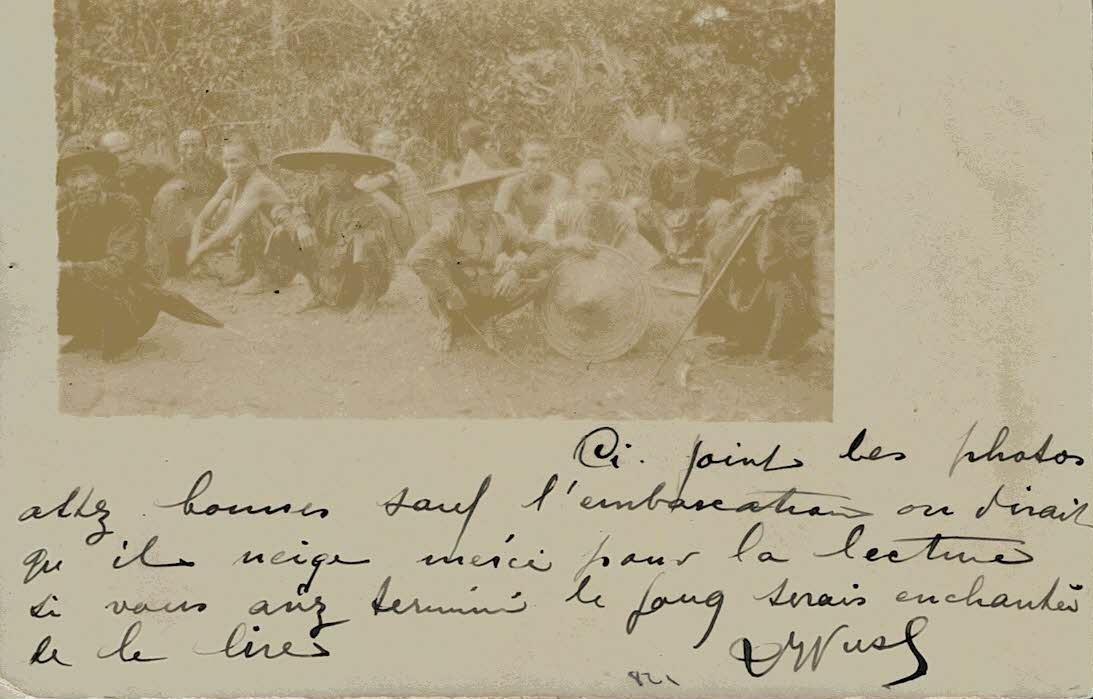 Ci. joint les photos
assez bonnes sauf l'embarcation on dirait
qu'il neige merci pour la lecture
si vous avez terminé le Joug serais enchantée
de le lire
821